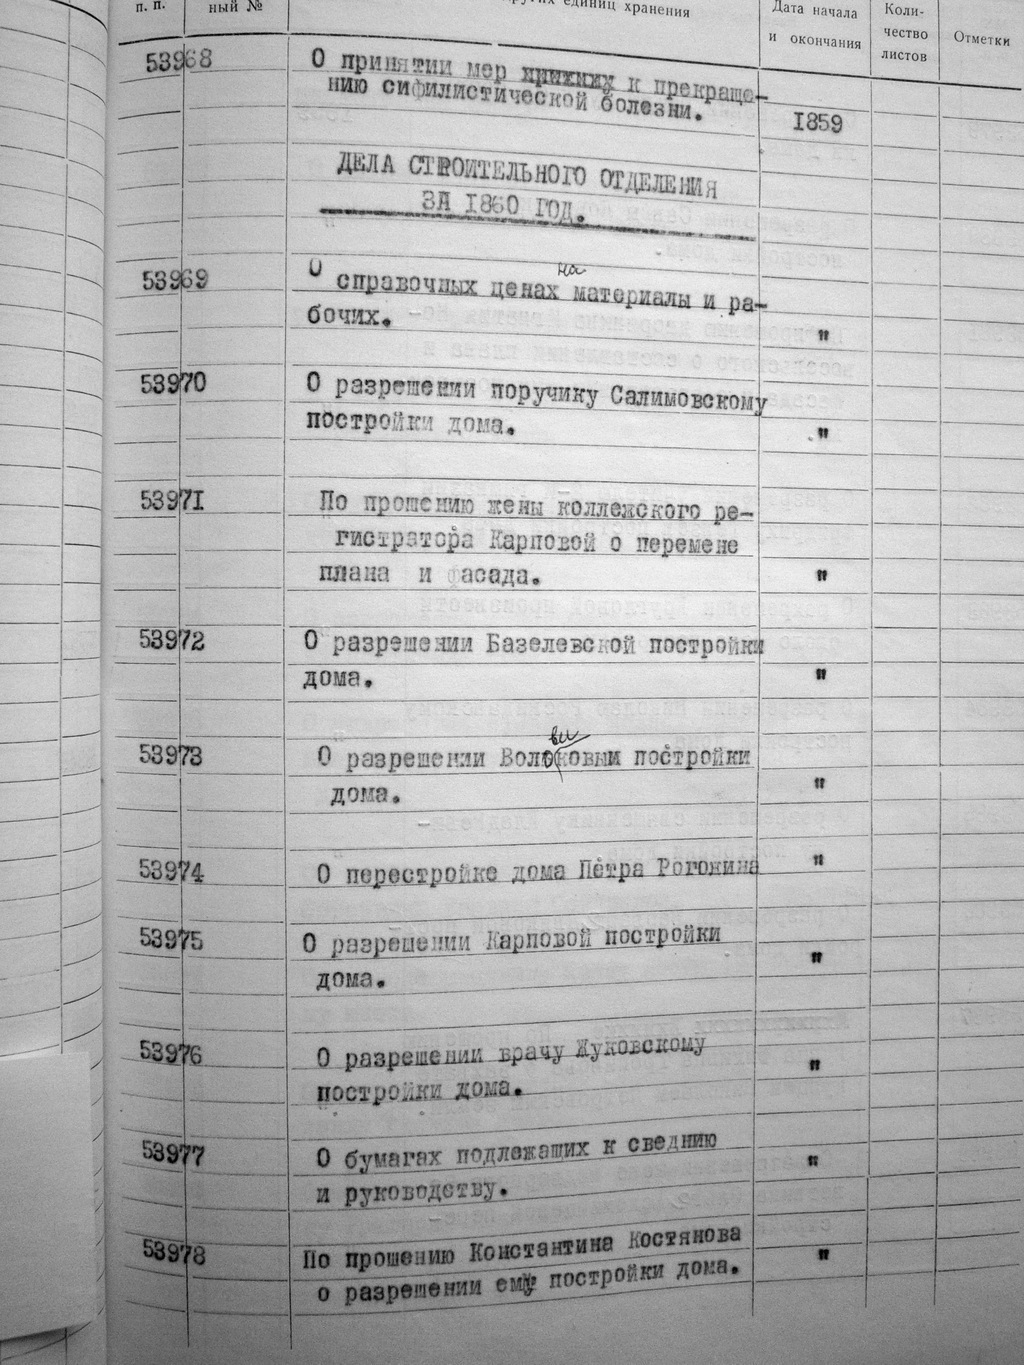 п. п.
ный №
других единиц хранения
Дата начала
и окончания
Коли-
чество
листов
Отметки
53968
О принятии мер к прекраще-
нию сифилистической болезни.
1859
ДЕЛА СТРОИТЕЛЬНОГО ОТДЕЛЕНИЯ
ЗА 1860 ГОД.
53969
О справочных ценах на материалы и ра-
бочих.
"
53970
О разрешении поручику Салимовскому
постройки дома.
"
53971
По прошению жены коллежского ре-
гистратора Карповой о перемене
плана и фасада.
"
53972
О разрешении Базелевской постройки
дома.
"
53973
ви
О разрешении Волоковым постройки
дома.
"
53974
О перестройке дома Петра Рогожина
"
53975
О разрешении Карповой постройки
дома.
"
53976
О разрешении врачу Жуковскому
постройки дома.
"
53977
О бумагах подлежащих к сведнию
и руководству.
"
53978
По прошению Константина Костянова
о разрешении ему постройки дома.
"